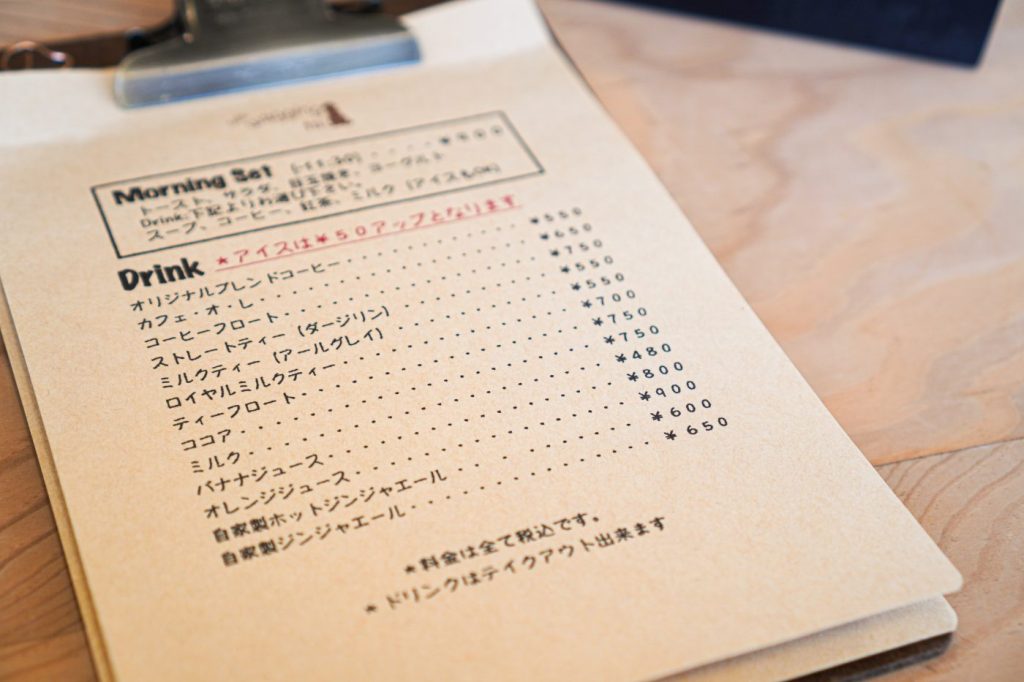 Morning Set (-11:30) ・・・・
トースト、サラダ、目玉焼き、ヨーグルト
Drink:下記よりお選び下さい。
スープ、コーヒー、紅茶、ミルク (アイスもOK)
Drink ★アイスは¥50アップとなります
オリジナルブレンドコーヒー・・・・・・・・・・・・¥550
カフェ・オ・レ・・・・・・・・・・・・・・・・¥650
コーヒーフロート・・・・・・・・・・・・・・・¥750
ストレートティー (ダージリン) ・・・・・・・・・¥550
ミルクティー (アールグレイ) ・・・・・・・・・・¥550
ロイヤルミルクティー・・・・・・・・・・・・・¥700
ティーフロート・・・・・・・・・・・・・・・・¥750
ココア・・・・・・・・・・・・・・・・・・・¥750
ミルク・・・・・・・・・・・・・・・・・・・¥480
バナナジュース・・・・・・・・・・・・・・・・¥800
オレンジジュース・・・・・・・・・・・・・・・¥900
自家製ホットジンジャエール・・・・・・・・・・¥600
自家製ジンジャエール・・・・・・・・・・・・・¥650
★料金は全て税込です。
★ドリンクはテイクアウト出来ます